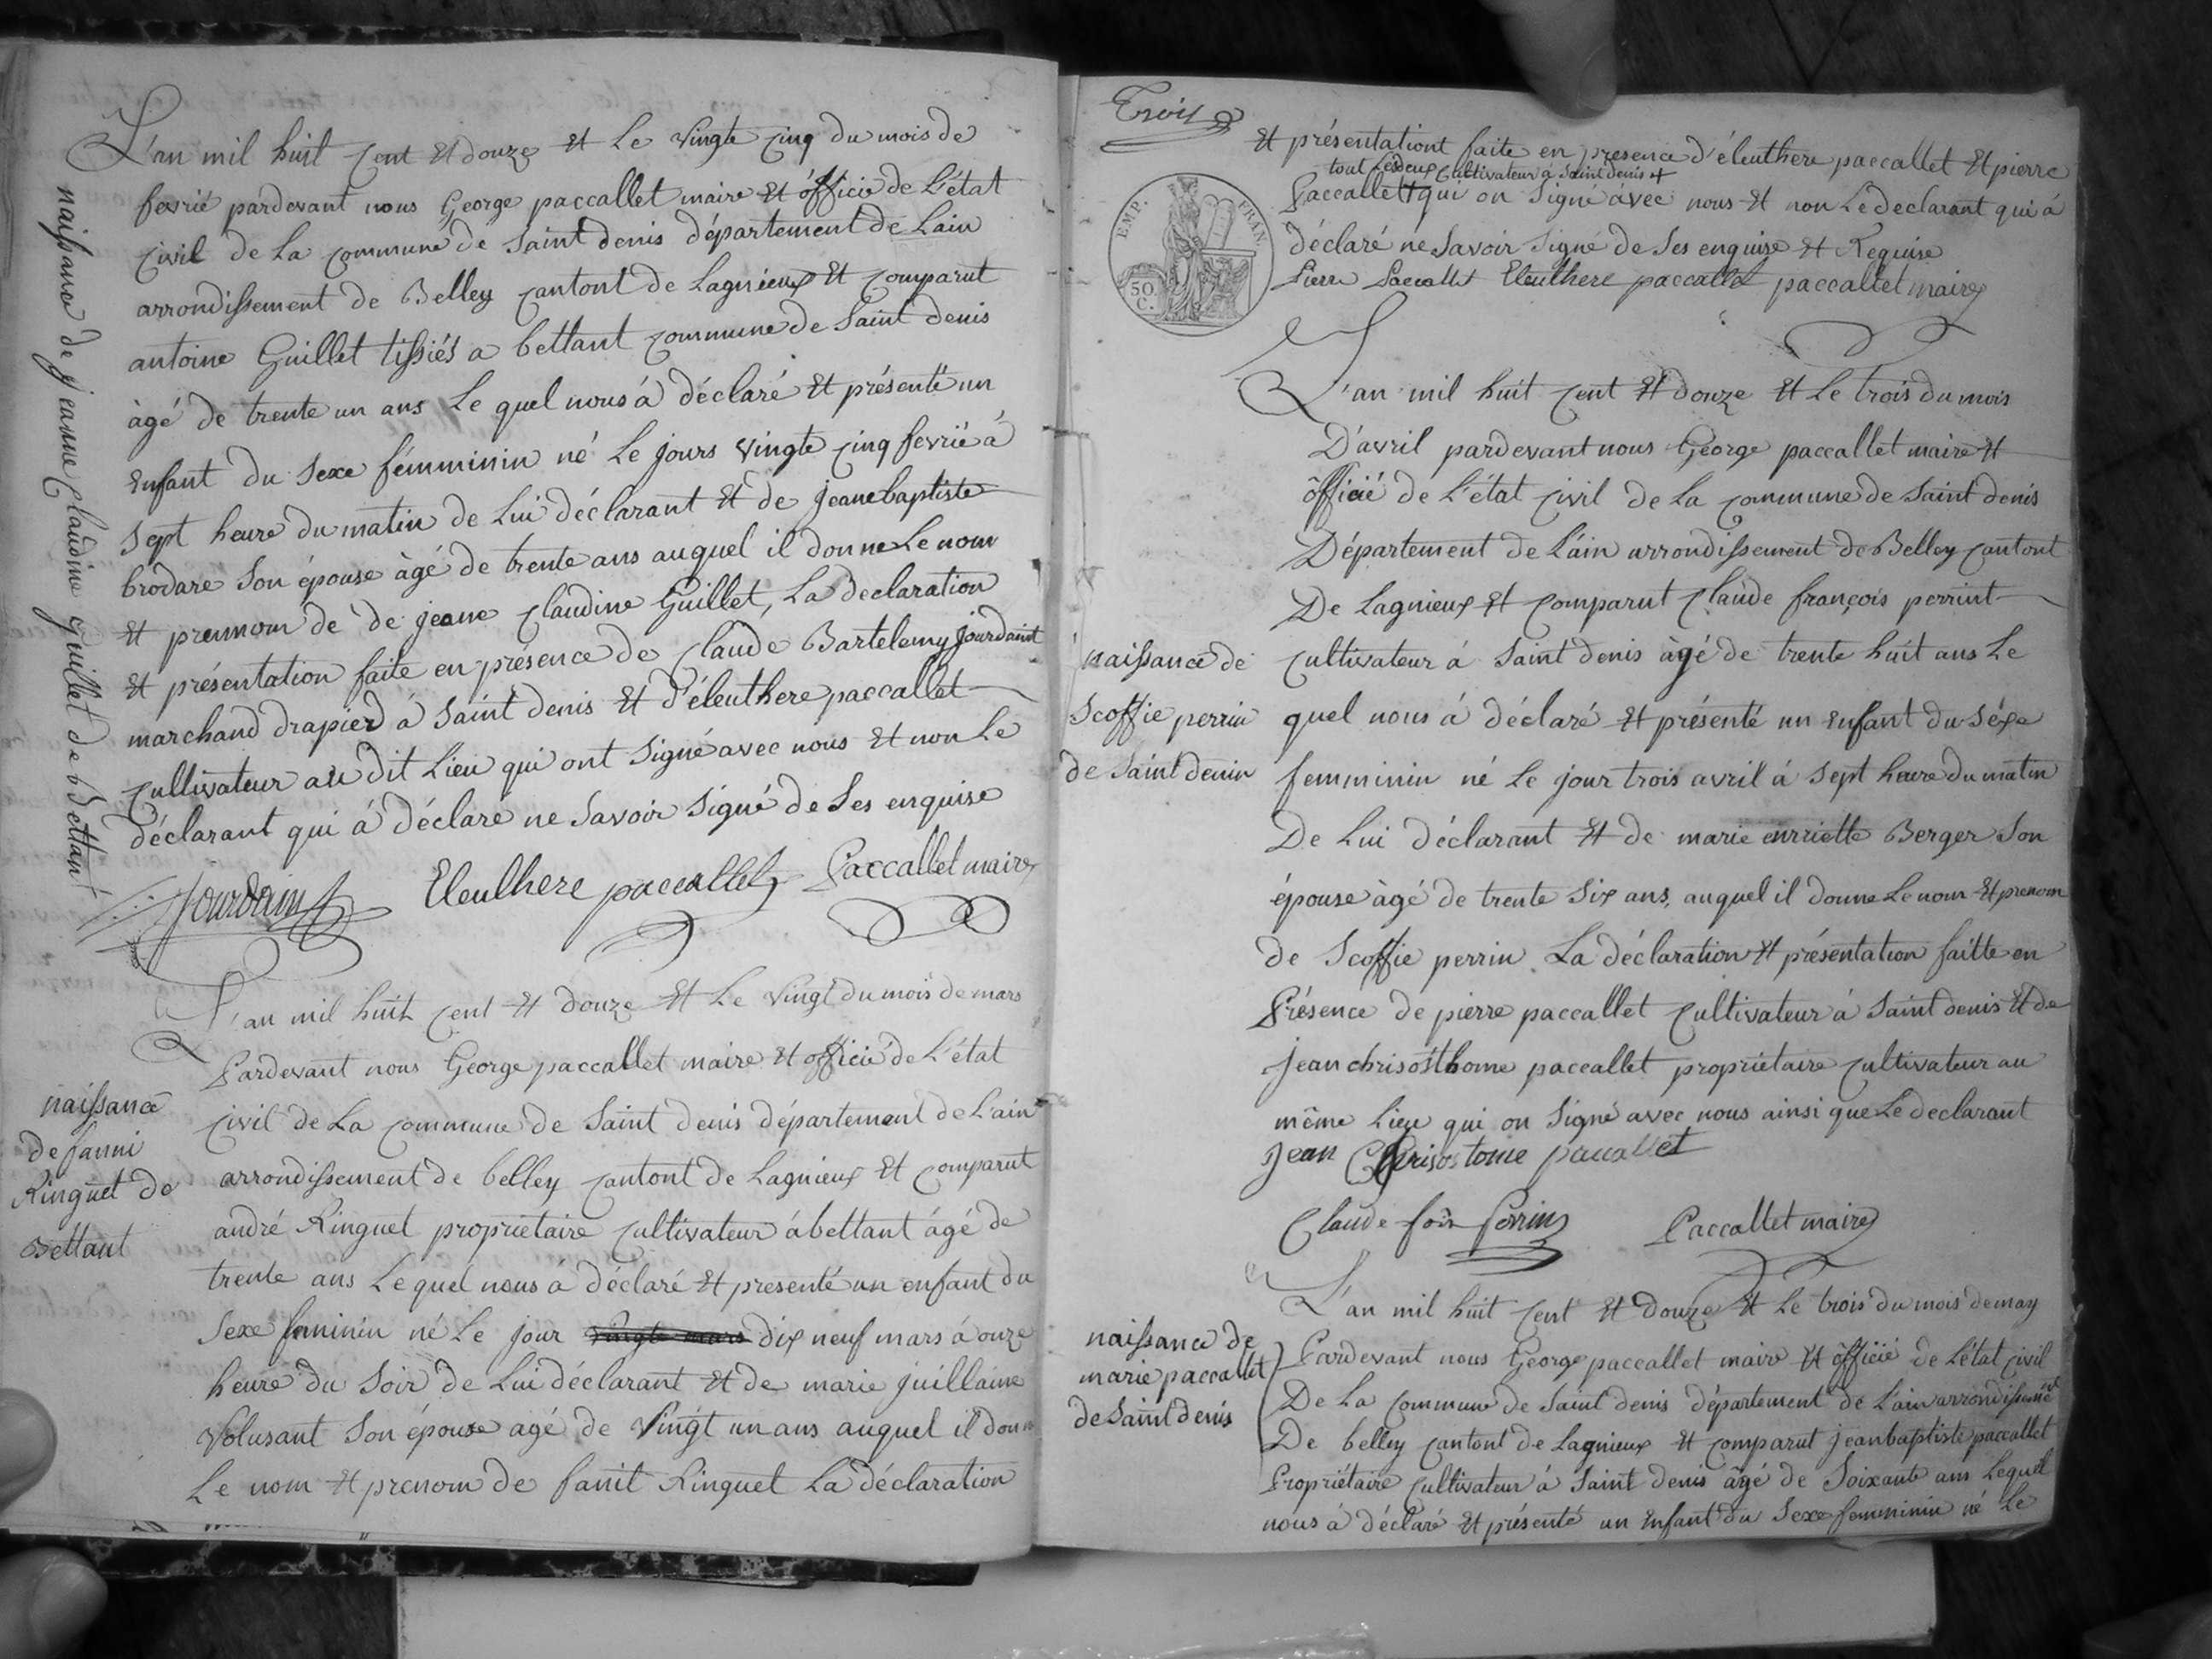 L'an mil huit cent et douze et le vingte cinq du mois de
fevrié pardevant nous George paccallet maire et officié de L'état
civil de La commune de Saint denis département de Lain
arrondissement de Belley cantont de Lagnieux et comparut
antoine Guillet tissiés a bettant commune de Saint denis
àgé de trente un ans Le quel nous á déclaré et présenté un
enfant du sexe fémminin né Le jours vingte cinq fevrié á
sept heure du matin de Lui déclarant et de jeane baptiste
brodare son épouse àgé de trente ans auquel il donne Le nom
et prennom de de jeane claudine Guillet, La declaration
et présentation faite en présence de claude Bartelemy jourdaint
marchand drapier á Saint denis et d'éleuthere paccallet
cultivateur au dit Lieu qui ont signé avec nous et non Le
déclarant qui á déclaré ne savoir signé de ses enquise
Jourdain Eleulhere paccallet Paccallet maire
naissance de jeanne claudine guillet de bettant
L'an mil huit cent et douze et Le vingt du mois de mars
Pardevant nous George paccallet maire et officié de L'état
civil de La commune de Saint denis département de L'ain
arrondissement de belley cantont de Lagnieux et comparut
andré Ringuet propriétaire cultivateur á bettant ágé de
trente ans Le quel nous á déclaré et presenté un enfant du
sexe feminin né Le jour vingte mars dix neuf mars á onze
heure du soir de Lui déclarant et de marie juillaine
Volusant son épouse agé de vingt un ans auquel il donne
Le nom et prenom de fanit Ringuet La déclaration
naissance
de fanni
Ringuet de
Bettant
Trois
EMP. FRAN.
50
C.
et présentationt faite en presence d'éleuthere paccallet et pierre
tout Les deux cultivateur a Saint denis +
Paccallet + qui on signé ávec nous et non Le declarant qui á
déclaré ne savoir signé de ses enquise et Requise
Pierre Paccallet Eleulhere paccallet paccallet maire
L'an mil huit cent et douze et Le trois du mois
D'avril pardevant nous George paccallet maire et
officié de L'état civil de La commune de Saint denis
Département de L'ain arrondissement de Belley cantont
De Lagnieux et comparut claude françois perrint
cultivateur á Saint denis àgé de trente huit ans Le
quel nous á déclaré et présenté un enfant du séxe
femminin né Le jour trois avril á sept heure du matin
De Lui déclarant et de marie enriette Berger son
épouse àgé de trente six ans, auquel il donne Le nom et prenom
de Scoffie perrin La déclaration et présentation faitte en
Présence de pierre paccallet cultivateur á Saint denis et de
jean chrisosthome paccallet propriétaire cultivateur au
même Lieu qui on signé avec nous ainsi que Le declarant
Jean Chrisostome paccallet
Claude fois Perrin Paccallet maire
naissance de
Scoffie perrin
de Saint denin
L'an mil huit cent et douze et Le trois du mois de may
Pardevant nous George paccallet maire et officié de L'état civil
De La commune de Saint denis département de L'ain arrondissement
De belley cantont de Lagnieux et comparut jean baptiste paccallet
Propriétaire cultivateur á Saint denis âgé de soixante ans Lequel
nous á déclaré et présenté un enfant du sexe femminin né Le
naissance de
marie paccallet
de Saint denis